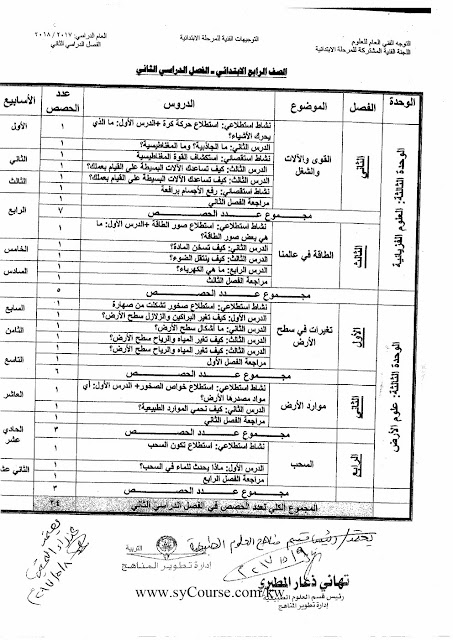 التوجه الفني العام للعلوم
اللجنة الفنية المشتركة للمرحلة الابتدائية
التوجيهات الفنية للمرحلة الابتدائية
العام الدراسي: ٢٠١٧ / ٢٠١٨
الفصل الدراسي الثاني
الصف الرابع الابتدائي - الفصل الدراسي الثاني
الوحدة الفصل الموضوع الدروس عدد الحصص الأسابيع
الوحدة الثالثة: العلوم الفيزيائية
الثاني
القوى والآلات والشغل
نشاط استطلاعي: استطلاع حركة كرة +الدرس الأول: ما الذي يحرك الأشياء؟ ١ الأول
الدرس الثاني: ما الجاذبية؟ وما المغناطيسية؟ ١
نشاط استقصائي: استكشاف القوة المغناطيسية ١ الثاني
الدرس الثالث: كيف تساعدك الآلات البسيطة على القيام بعملك؟ ١
الدرس الثالث: كيف تساعدك الآلات البسيطة على القيام بعملك؟ ١ الثالث
نشاط استقصائي: رفع الأجسام برافعة ١
مراجعة الفصل الثاني ١ الرابع
مجموع عدد الحصص ٧
الثالث
الطاقة في عالمنا
نشاط استطلاعي: استطلاع صور الطاقة +الدرس الأول: ما هي بعض صور الطاقة؟ ١
الدرس الثاني: كيف تسخن المادة؟ ١ الخامس
الدرس الثالث: كيف ينتقل الضوء؟ ١
الدرس الرابع: ما هي الكهرباء؟ ١ السادس
مراجعة الفصل الثالث ١
مجموع عدد الحصص ٥
الوحدة الثالثة: علوم الأرض
الأول
تغيرات في سطح الأرض
نشاط استطلاعي: استطلاع صخور تشكلت من صهارة ١ السابع
الدرس الأول: كيف تغير البراكين والزلازل سطح الأرض؟ ١
الدرس الثاني: ما أشكال سطح الأرض؟ ١ الثامن
الدرس الثالث: كيف تغير المياه والرياح سطح الأرض؟ ١
الدرس الثالث: كيف تغير المياه والرياح سطح الأرض؟ ١ التاسع
مراجعة الفصل الأول ١
مجموع عدد الحصص ٦
الثاني
موارد الأرض
نشاط استطلاعي: استطلاع خواص الصخور+ الدرس الأول: أي مواد مصدرها الأرض؟ ١ العاشر
الدرس الثاني: كيف نحمي الموارد الطبيعية؟ ١
مراجعة الفصل الثاني ١ الحادي عشر
مجموع عدد الحصص ٣
الرابع
السحب
نشاط استطلاعي: استطلاع تكون السحب ١
الدرس الأول: ماذا يحدث للماء في السحب؟ ١ الثاني عشر
مراجعة الفصل الرابع ١
مجموع عدد الحصص ٣
المجموع الكلي لعدد الحصص في الفصل الدراسي الثاني ٢٤
رئيس قسم مناهج العلوم
التربية
إدارة تطوير المناهج
تهاني ذعار المطيري
رئيس قسم العلوم
إدارة تطوير المناهج
www.syCourse.com/kw